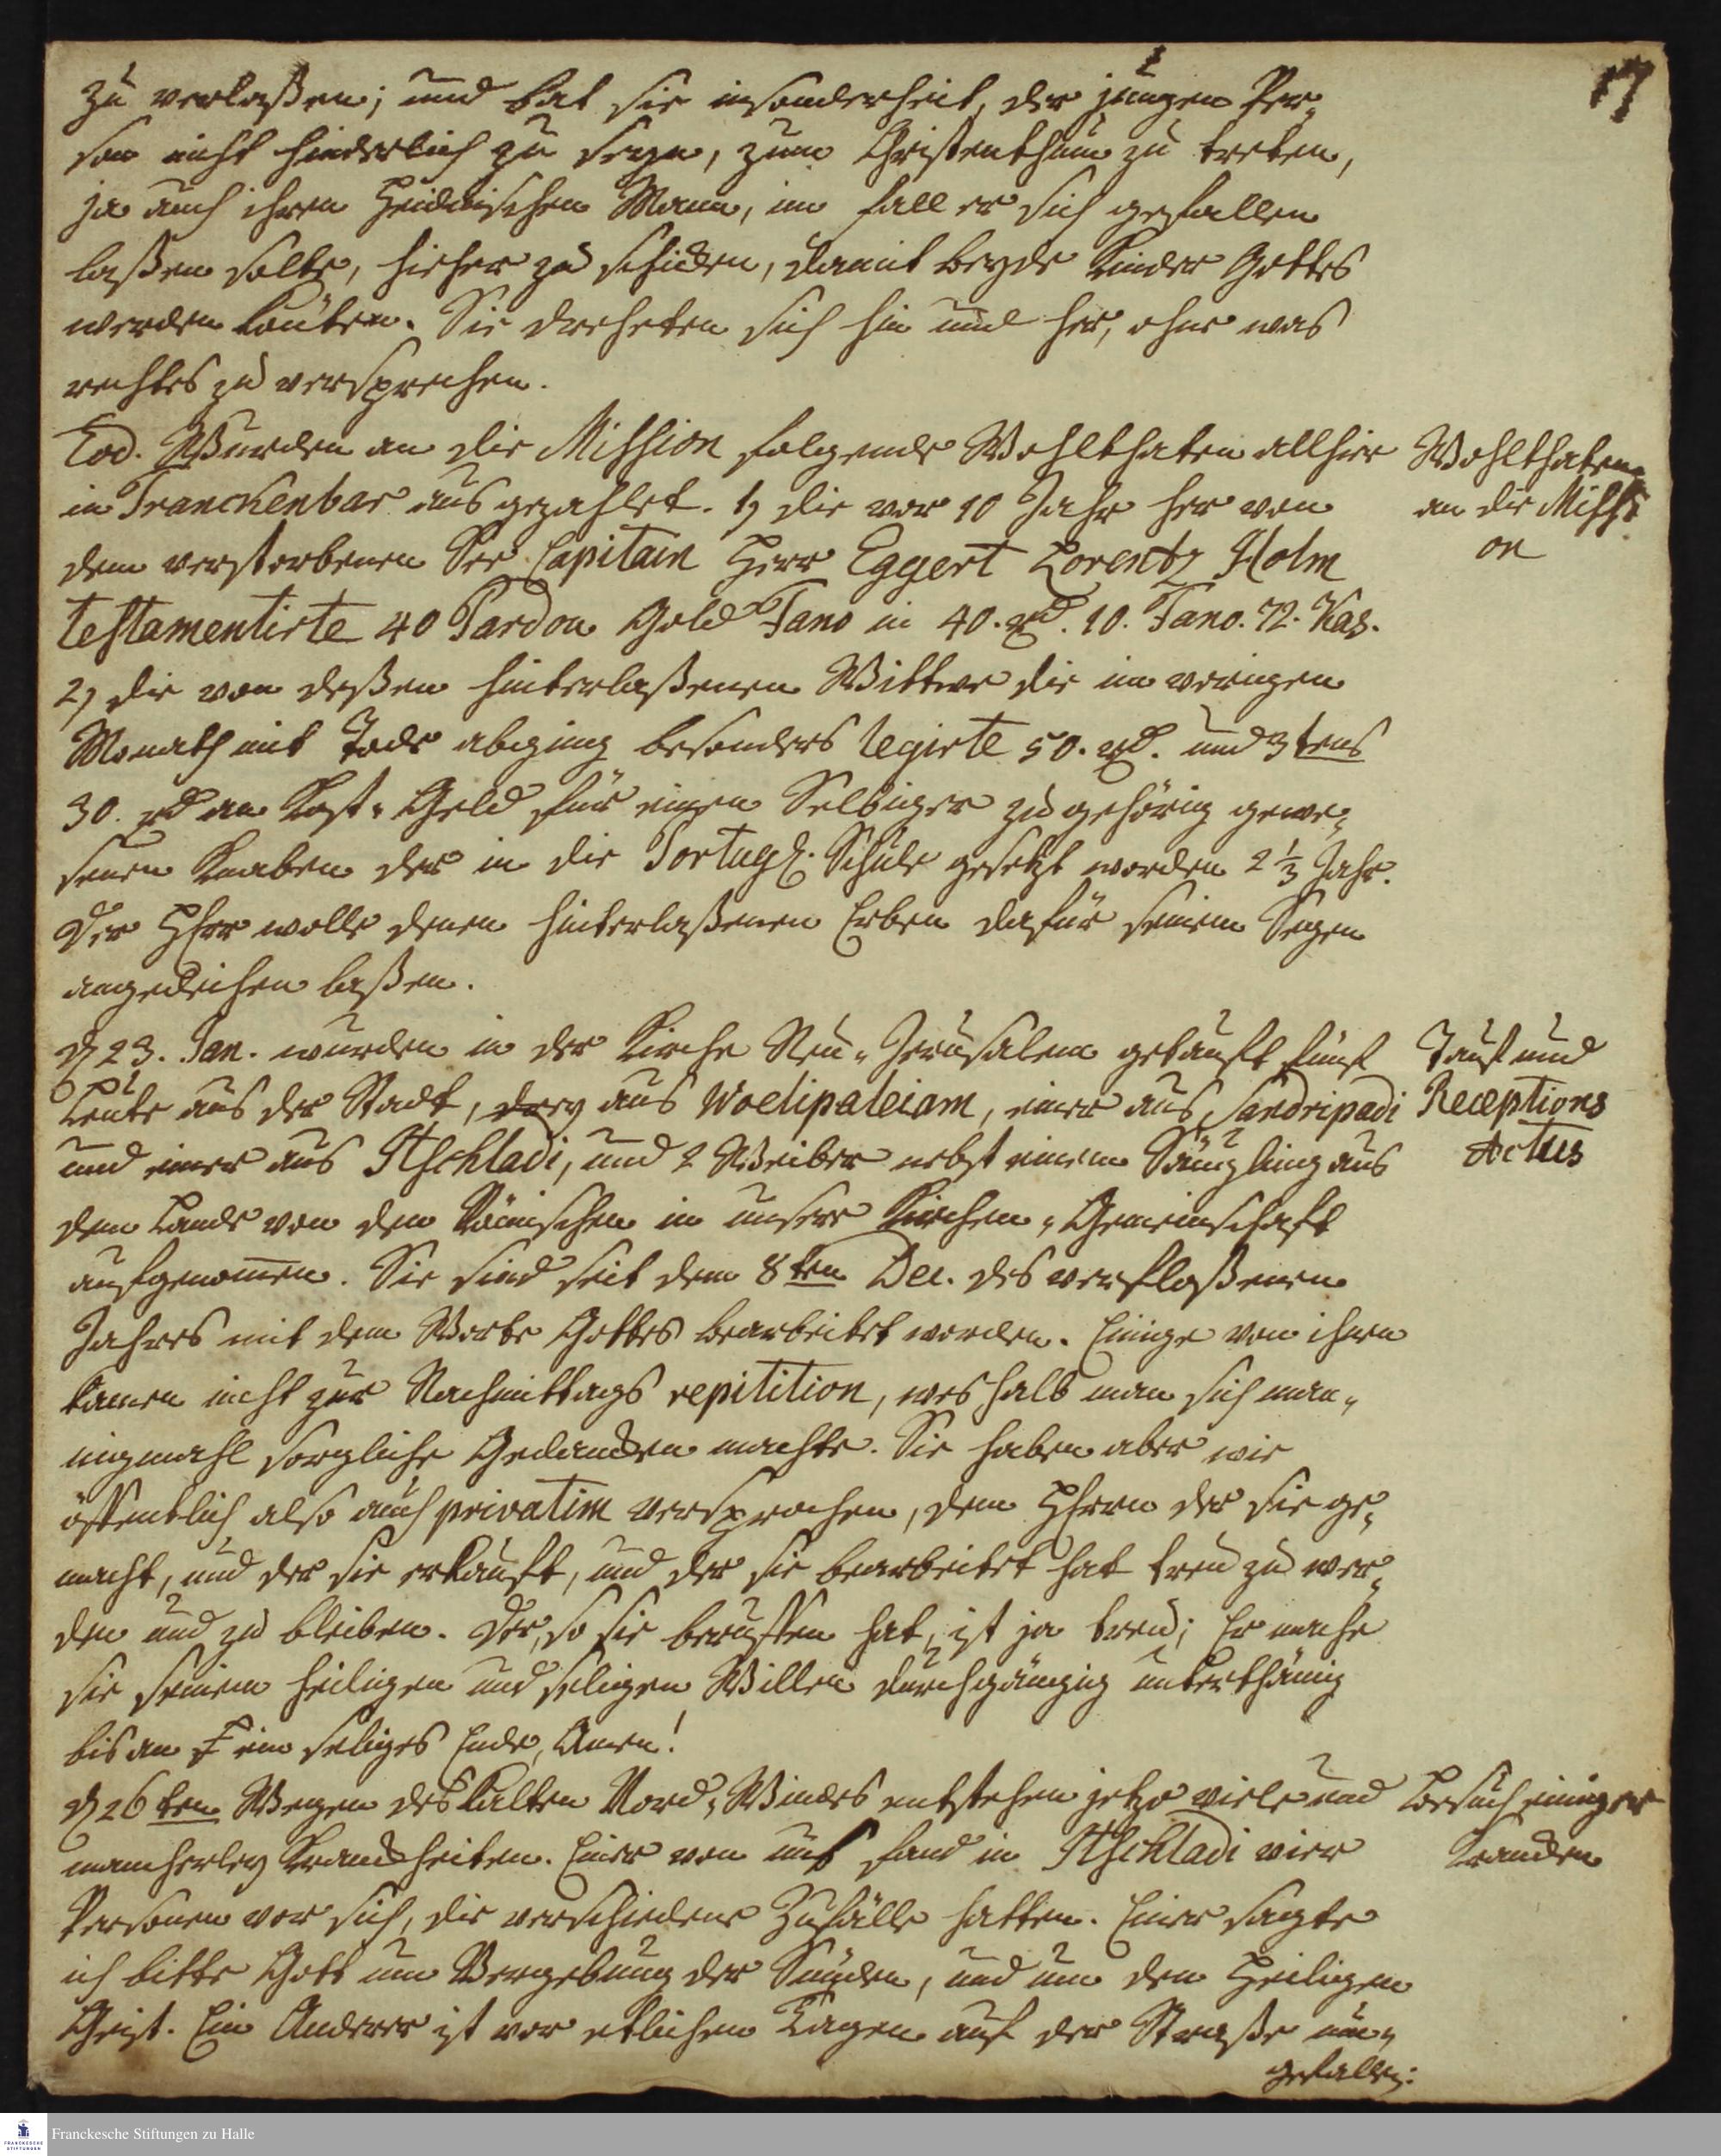 17
zu verlaßen; und bat sie insonderheit, der jungen Per-
son nicht hinderlich zu seyn, zum Christenthum zu treten,
ja auch ihren Heidnischen Mann, im fall er sich gefallen
laßen solte, hieher zu schicken, damit beyde Kinder Gottes
werden könten. Sie dreheten sich hin und her, ohne was
rechtes zu versprechen.
Eod. Wurden an die Mission folgende Wohlthaten allhier
in Tranckenbar ausgezahlet. 1) die vor 10 Jahr her von
dem verstorbenen See Capitain Herr Eggert Lorentz Holm
testamentirte 40 Pardou Gold Fano in 40. rd. 10. Fano. 72. Kas.
2) die von deßen hinterlaßenen Wittwe die im vorigen
Monath mit Tode abging besonders legirte 50. rd. und 3tens
30. rd an Kost-Geld für einen Selbiger zugehörig gewe-
senen Knaben der in die Portug. Schule gesetzt worden 2 1/3 Jahr.
Der HErr wolle denen hinterlaßenen Erben dafür seinen Segen
angedeihen laßen.
Wohlthaten
an die Missi
on
d 23. Jan. wurden in der Kirche Neu-Jerusalem getauft fünf
Leute aus der Stadt, drey aus Woelipaleiam, einer aus Sandripadi
und einer aus Ittschladi, und 2 Weiber nebst einem Säugling aus
dem Lande von den Römischen in unsere Kirchen-Gemeinschaft
aufgenommen. Sie sind seit dem 8ten Dec. des verfloßenen
Jahres mit dem Worte Gottes bearbeitet worden. Einige von ihnen
kamen nicht zur Nachmittags repitition, weshalb man sich man-
nigmahl sorgliche Gedancken machte. Sie haben aber wie
öffentlich also auch privatim versprochen, dem HErrn der sie ge-
macht, und der sie erkauft, und der sie bearbeitet hat treu zu wer-
den und zu bleiben. Der, so sie beruffen hat, ist ja treu; Er mache
sie seinem heiligen und seligen Willen durchgängig unterthänig
bis an ein seliges Ende, Amen!
Tauf und
Receptions
Actus
d 26ten Wegen des Kalten Nord-Windes entstehen jetzo viele und
mancherley Kranckheiten. Einer von uns fand in Ittschladi vier
Personen vor sich, die verschiedene Zufälle hatten. Einer sagte
ich bitte Gott um Vergebung der Sünden, und um den Heiligen
Geist. Ein Anderer ist vor etlichen Tagen auf der Straße um-
gefallen:
Besuch einiger
Krancken
Franckesche Stiftungen zu Halle
FRANCKESCHE
STIFTUNGEN